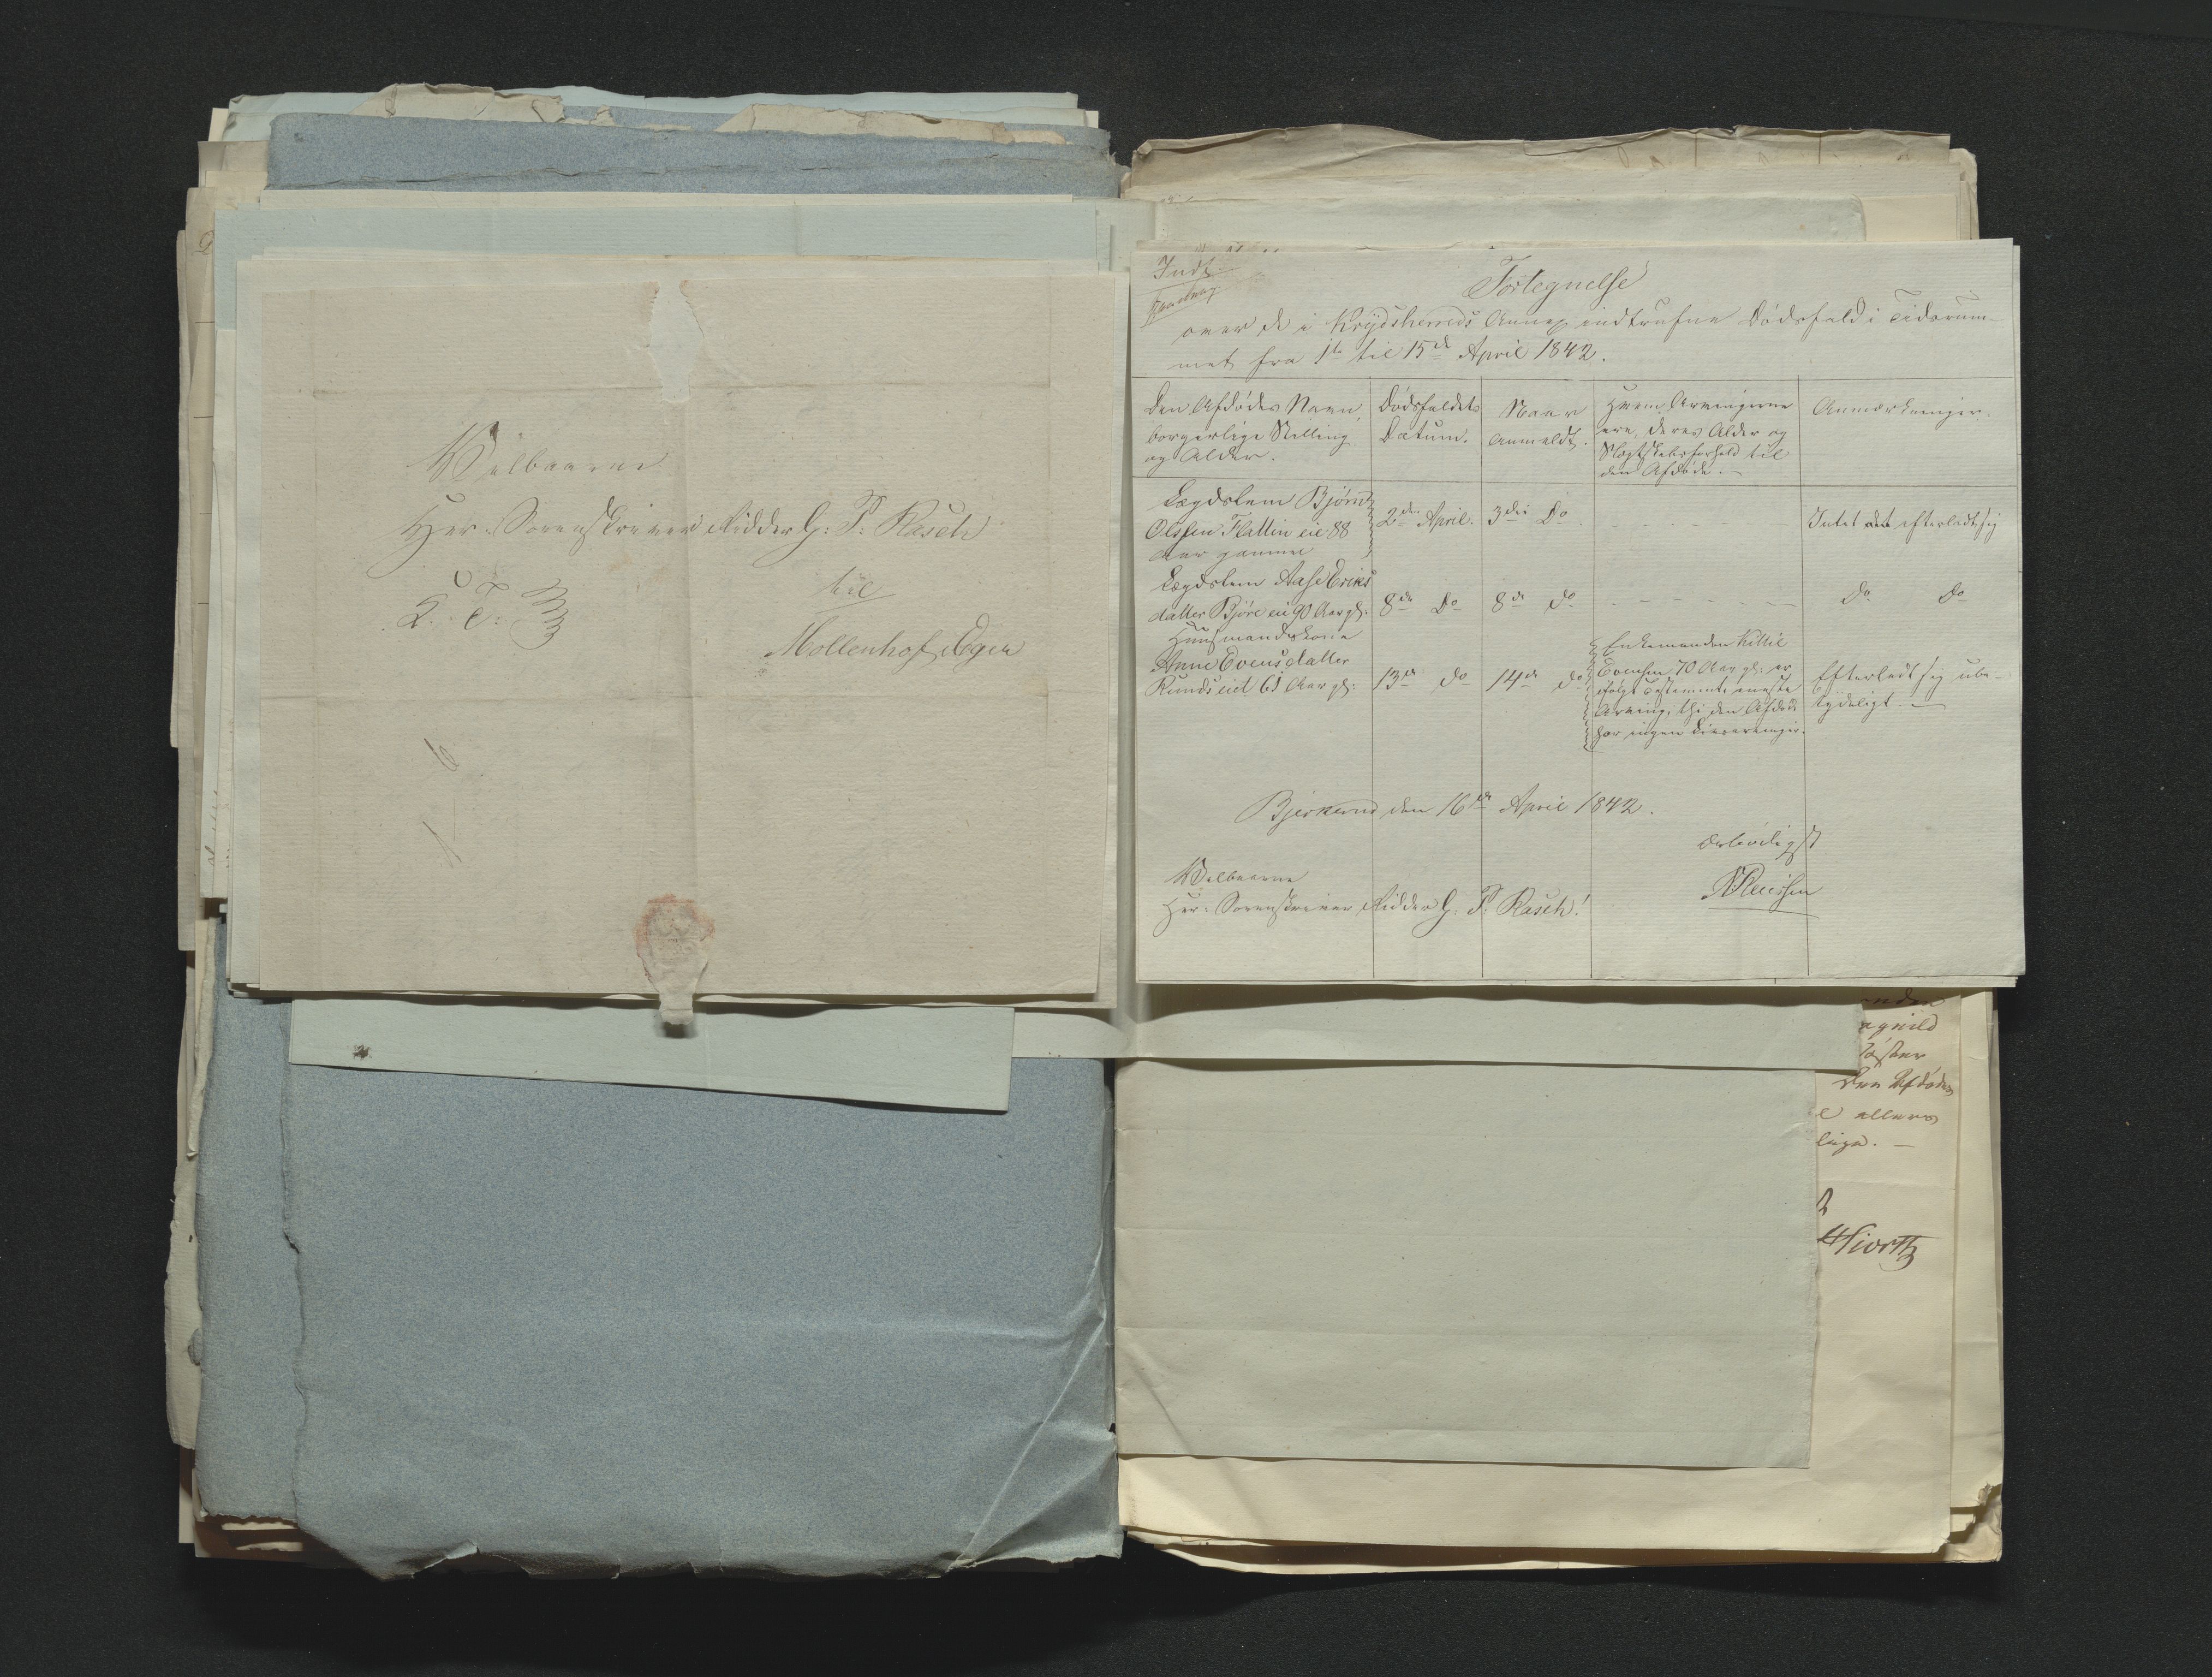 Velbaarne
Herr Sorenskriver Ridder G: P: Rasch
S: T:
til
Mollenhof Eger
Indf.
Fortegnelse
over de i Krydsherreds Annex indtrufne Dødsfald i Tidsrum-
met fra 1te til 15de April 1842.
Den Afdødes Navn,
borgerlige Stilling
og Alder.
Dødsfaldets
Datum.
Naar
anmeldt.
Hvem Arvingerne
ere, deres Alder og
Slægtskabsforhold til
den Afdøde. –
Anmærkninger.
Lægdslem Bjørn
Olssen Flattin eie 88
Aar gammel
2den April.
3die Do
Intet efterladt sig
Lægdslem Aase Eriks
datter Bjøre eie 90 Aar gl:
8de Do
8de Do
Do Do
Huusmandskone
Anne Evensdatter
Runds eiet 61 Aar gl:
13de Do
14de Do
Enkemanden Kittil
Evensen 70 Aar gl: er
ifølge Testamente eneste
Arving, thi den Afdøde
har ingen Livsarvinger.
Efterladt sig ube-
tydeligt. –
Bjerkerud den 16de April 1842.
Ærbødigst
Velbaarne
Herr Sorenskriver Ridder G: P: Rasch!
agnild
Den Afdødes
Hiorth